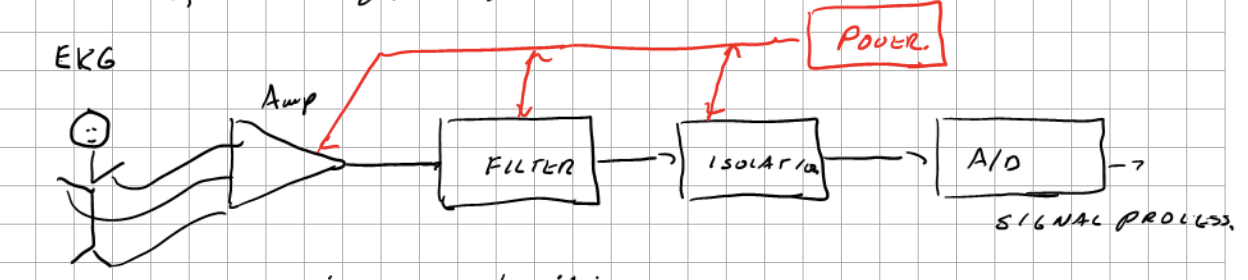 EKG
Amp
POWER.
FILTER
ISOLATIO
A/D
SIGNAL PROCESS.